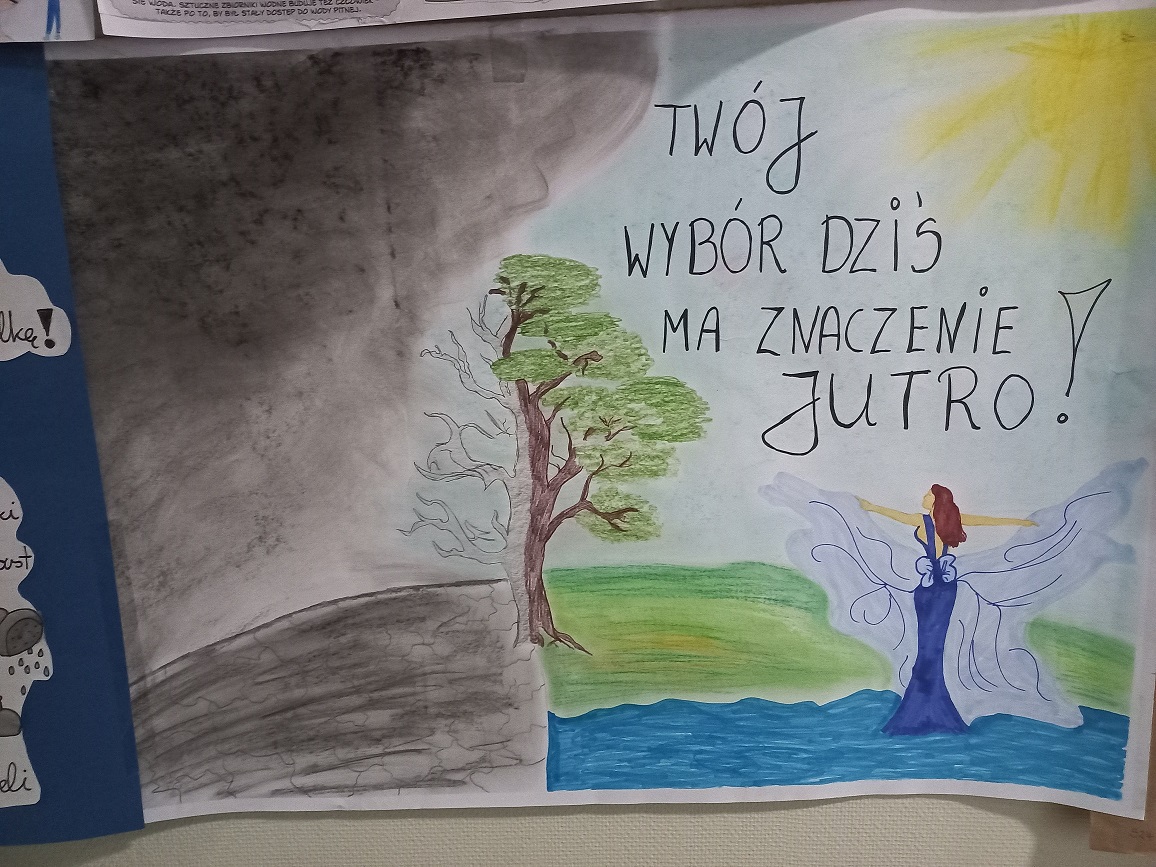 SIĘ WODA. SZTUCZNE ZBIORNIKI WODNE BUDUJE TEŻ CZŁOWIEK
TAKŻE PO TO, BY BYŁ STAŁY DOSTĘP DO WODY PITNEJ.
TWÓJ
WYBÓR DZIŚ
MA ZNACZENIE
JUTRO!